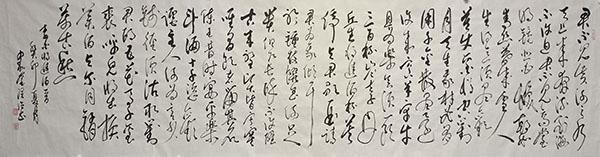 君不見黃河之水
天上來奔流到海
不復回君不見高堂
明鏡悲白髮朝如
青絲暮成雪人
生得意須盡歡
莫使金樽空對
月天生我材必有
用千金散盡還
復來烹羊宰牛
且為樂會須一飲
三百杯岑夫子丹
丘生將進酒杯莫
停與君歌一曲請
君為我傾耳聽
鐘鼓饌玉何足
貴但願長醉不復醒
古來聖賢皆寂寞
唯有飲者留其名
陳王昔時宴平樂
斗酒十千恣歡
謔主人何為言少
錢徑須沽取對
君酌五花馬千金
裘呼兒將出換
美酒與爾同銷
萬古愁
李白將進酒
癸卯夏月